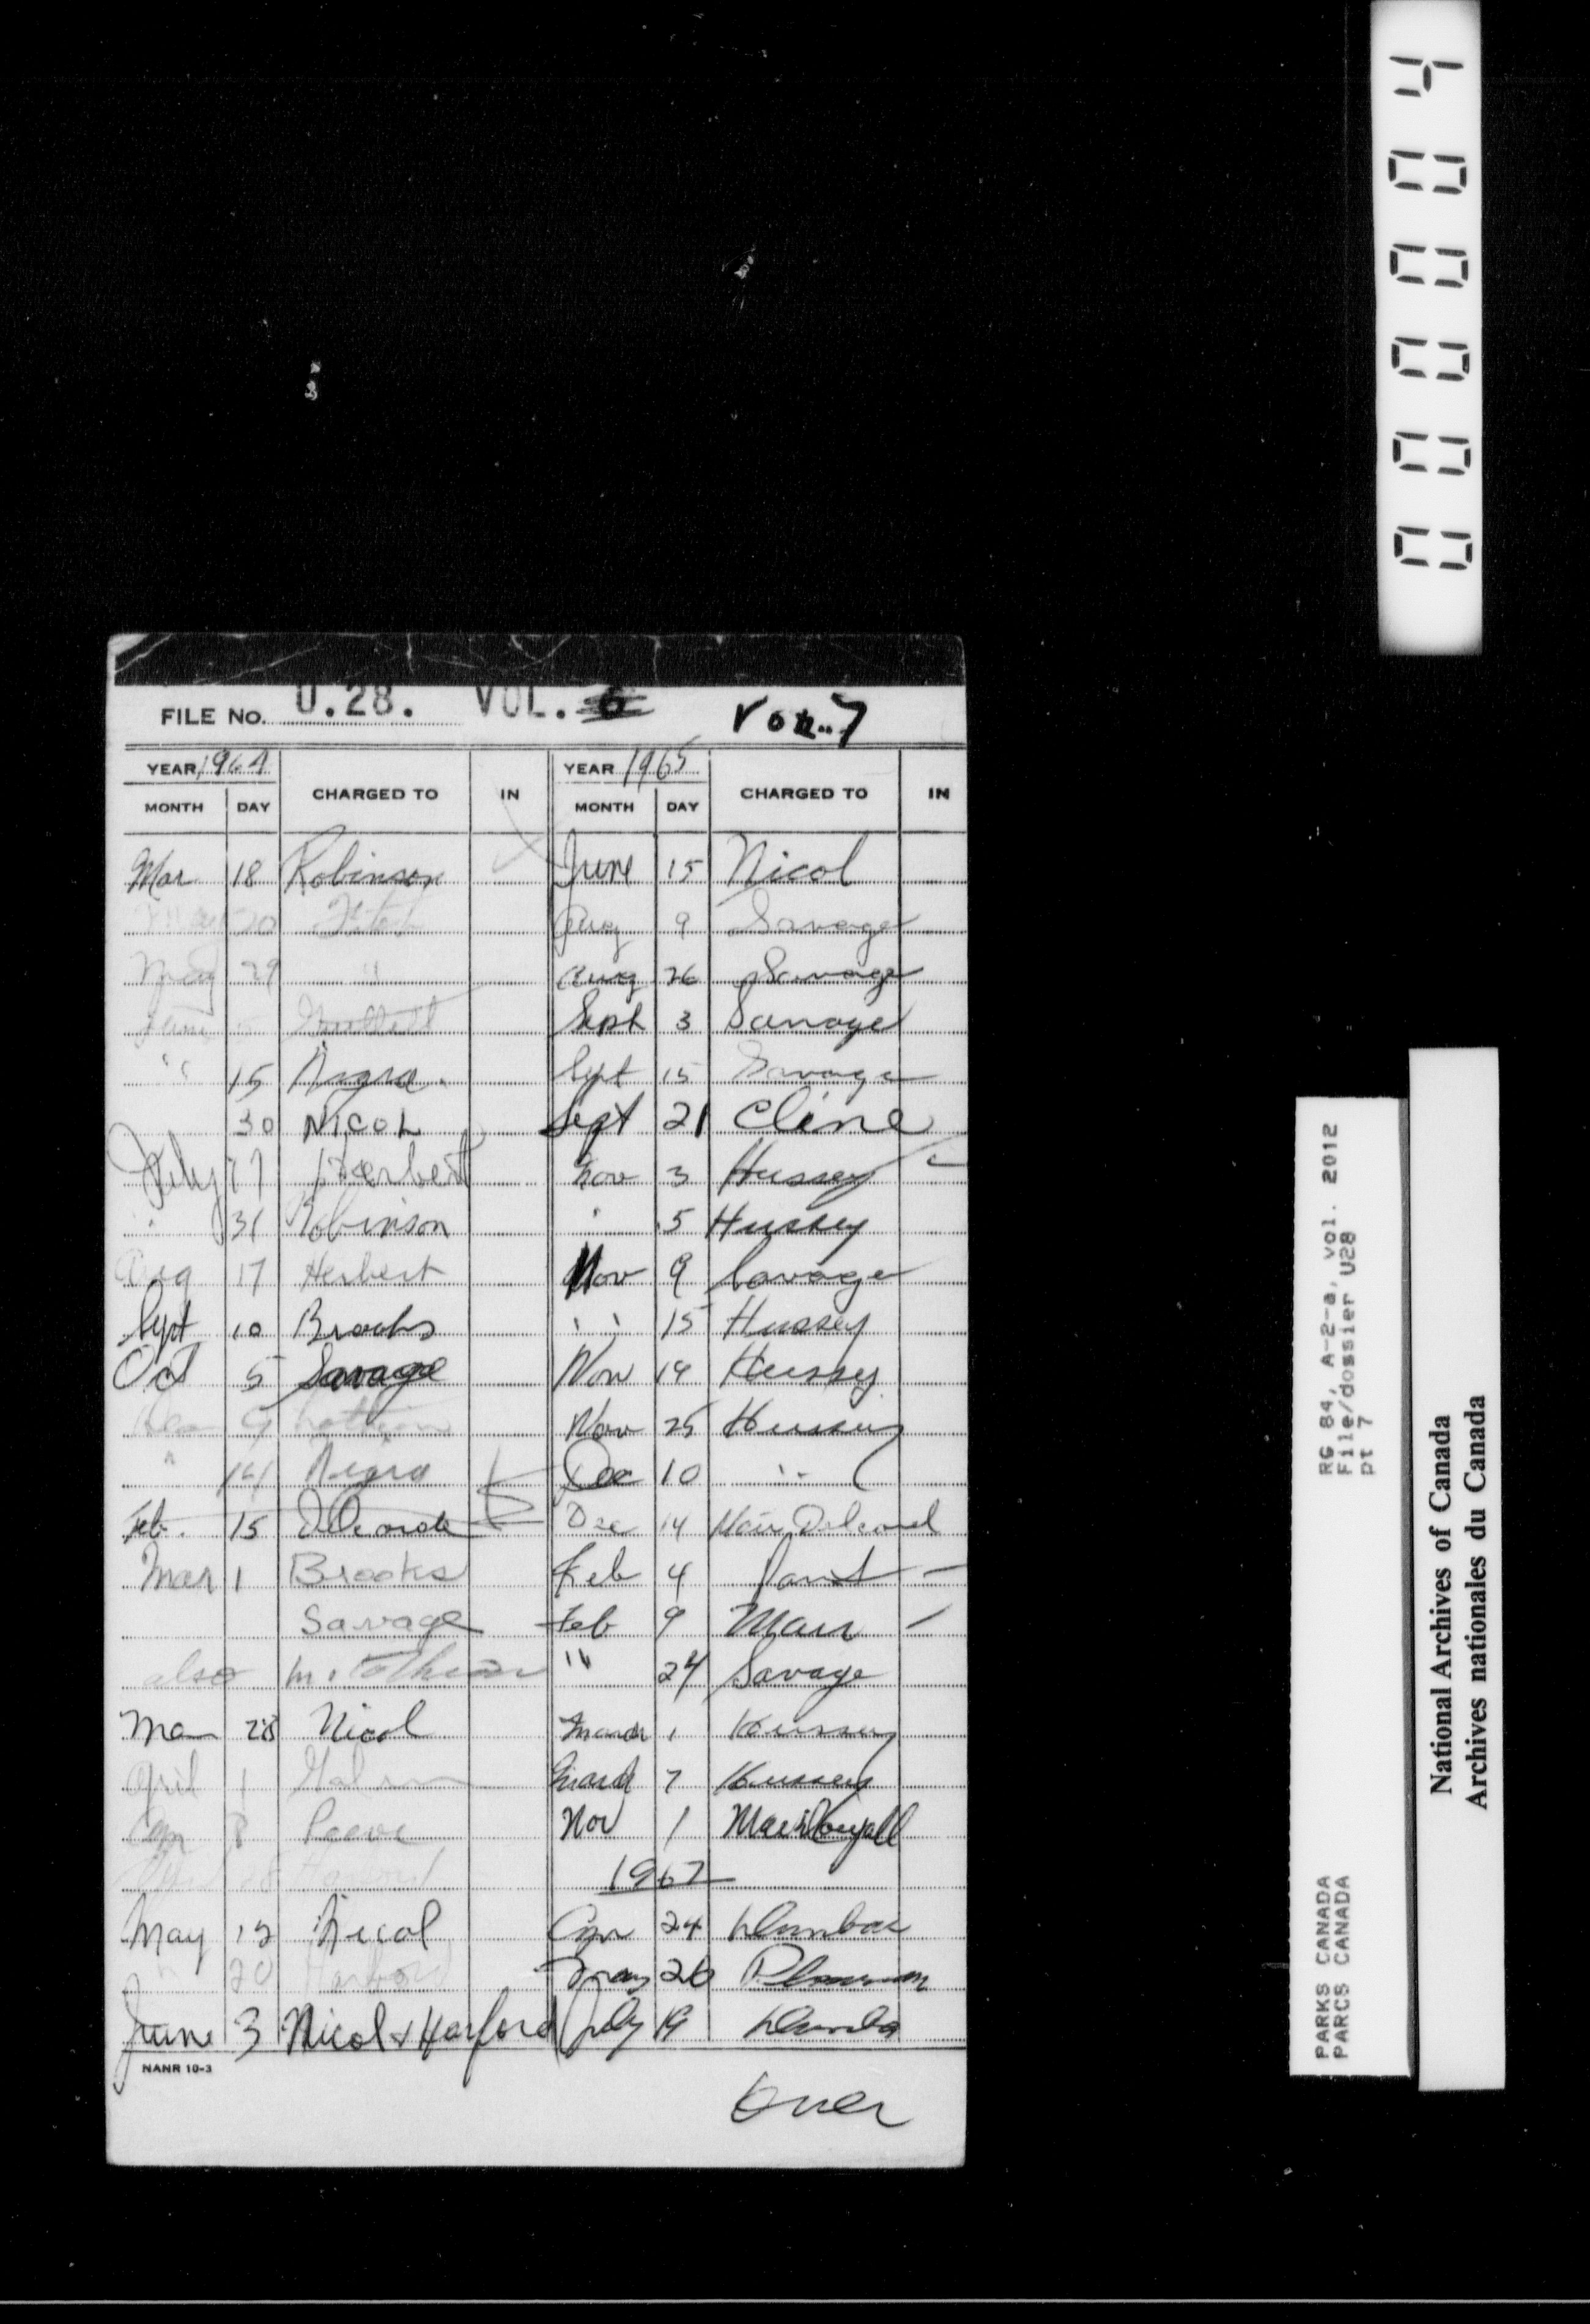 FILE NO. U.28. VOL. 6 VOL. 7
YEAR 1964 CHARGED TO IN YEAR 1965 CHARGED TO IN
MONTH DAY MONTH DAY
Mar 18 Robinson June 15 Nicol
May 20 Aug 9 Savage
May 29 " Aug 26 Savage
June 5 Sept 3 Savage
" 15 Nigra. Sept 15 Savage
30 NICOL Sept 21 Cline
July 17 Herbert Nov 3 Hussey
" 31 Robinson " 5 Hussey
Aug 17 Herbert Nov 9 Savage
Sept 10 Brooks " " 15 Hussey
Oct 5 Savage Nov 19 Hussey
Dec 9 Lothian Nov 25 Hussey
" 14 Nigra Dec 10 "
Feb. 15 Dec 14
Mar 1 Brooks Feb 4
Savage Feb 9 Mair
also Mr. Lothian " 24 Savage
Mar 28 Nicol March 1 Hussey
April 1 March 7 Hussey
Apr 8 Reeve Nov 1 MacDougall
28 1967
May 12 Nicol Apr 24 Dunbar
" 20 Harford May 26
June 3 Nicol & Harford July 19
NANR 10-3
Over
000004
RG 84, A-2-a, vol. 2012
File/dossier U28
pt 7
PARKS CANADA
PARCS CANADA
National Archives of Canada
Archives nationales du Canada